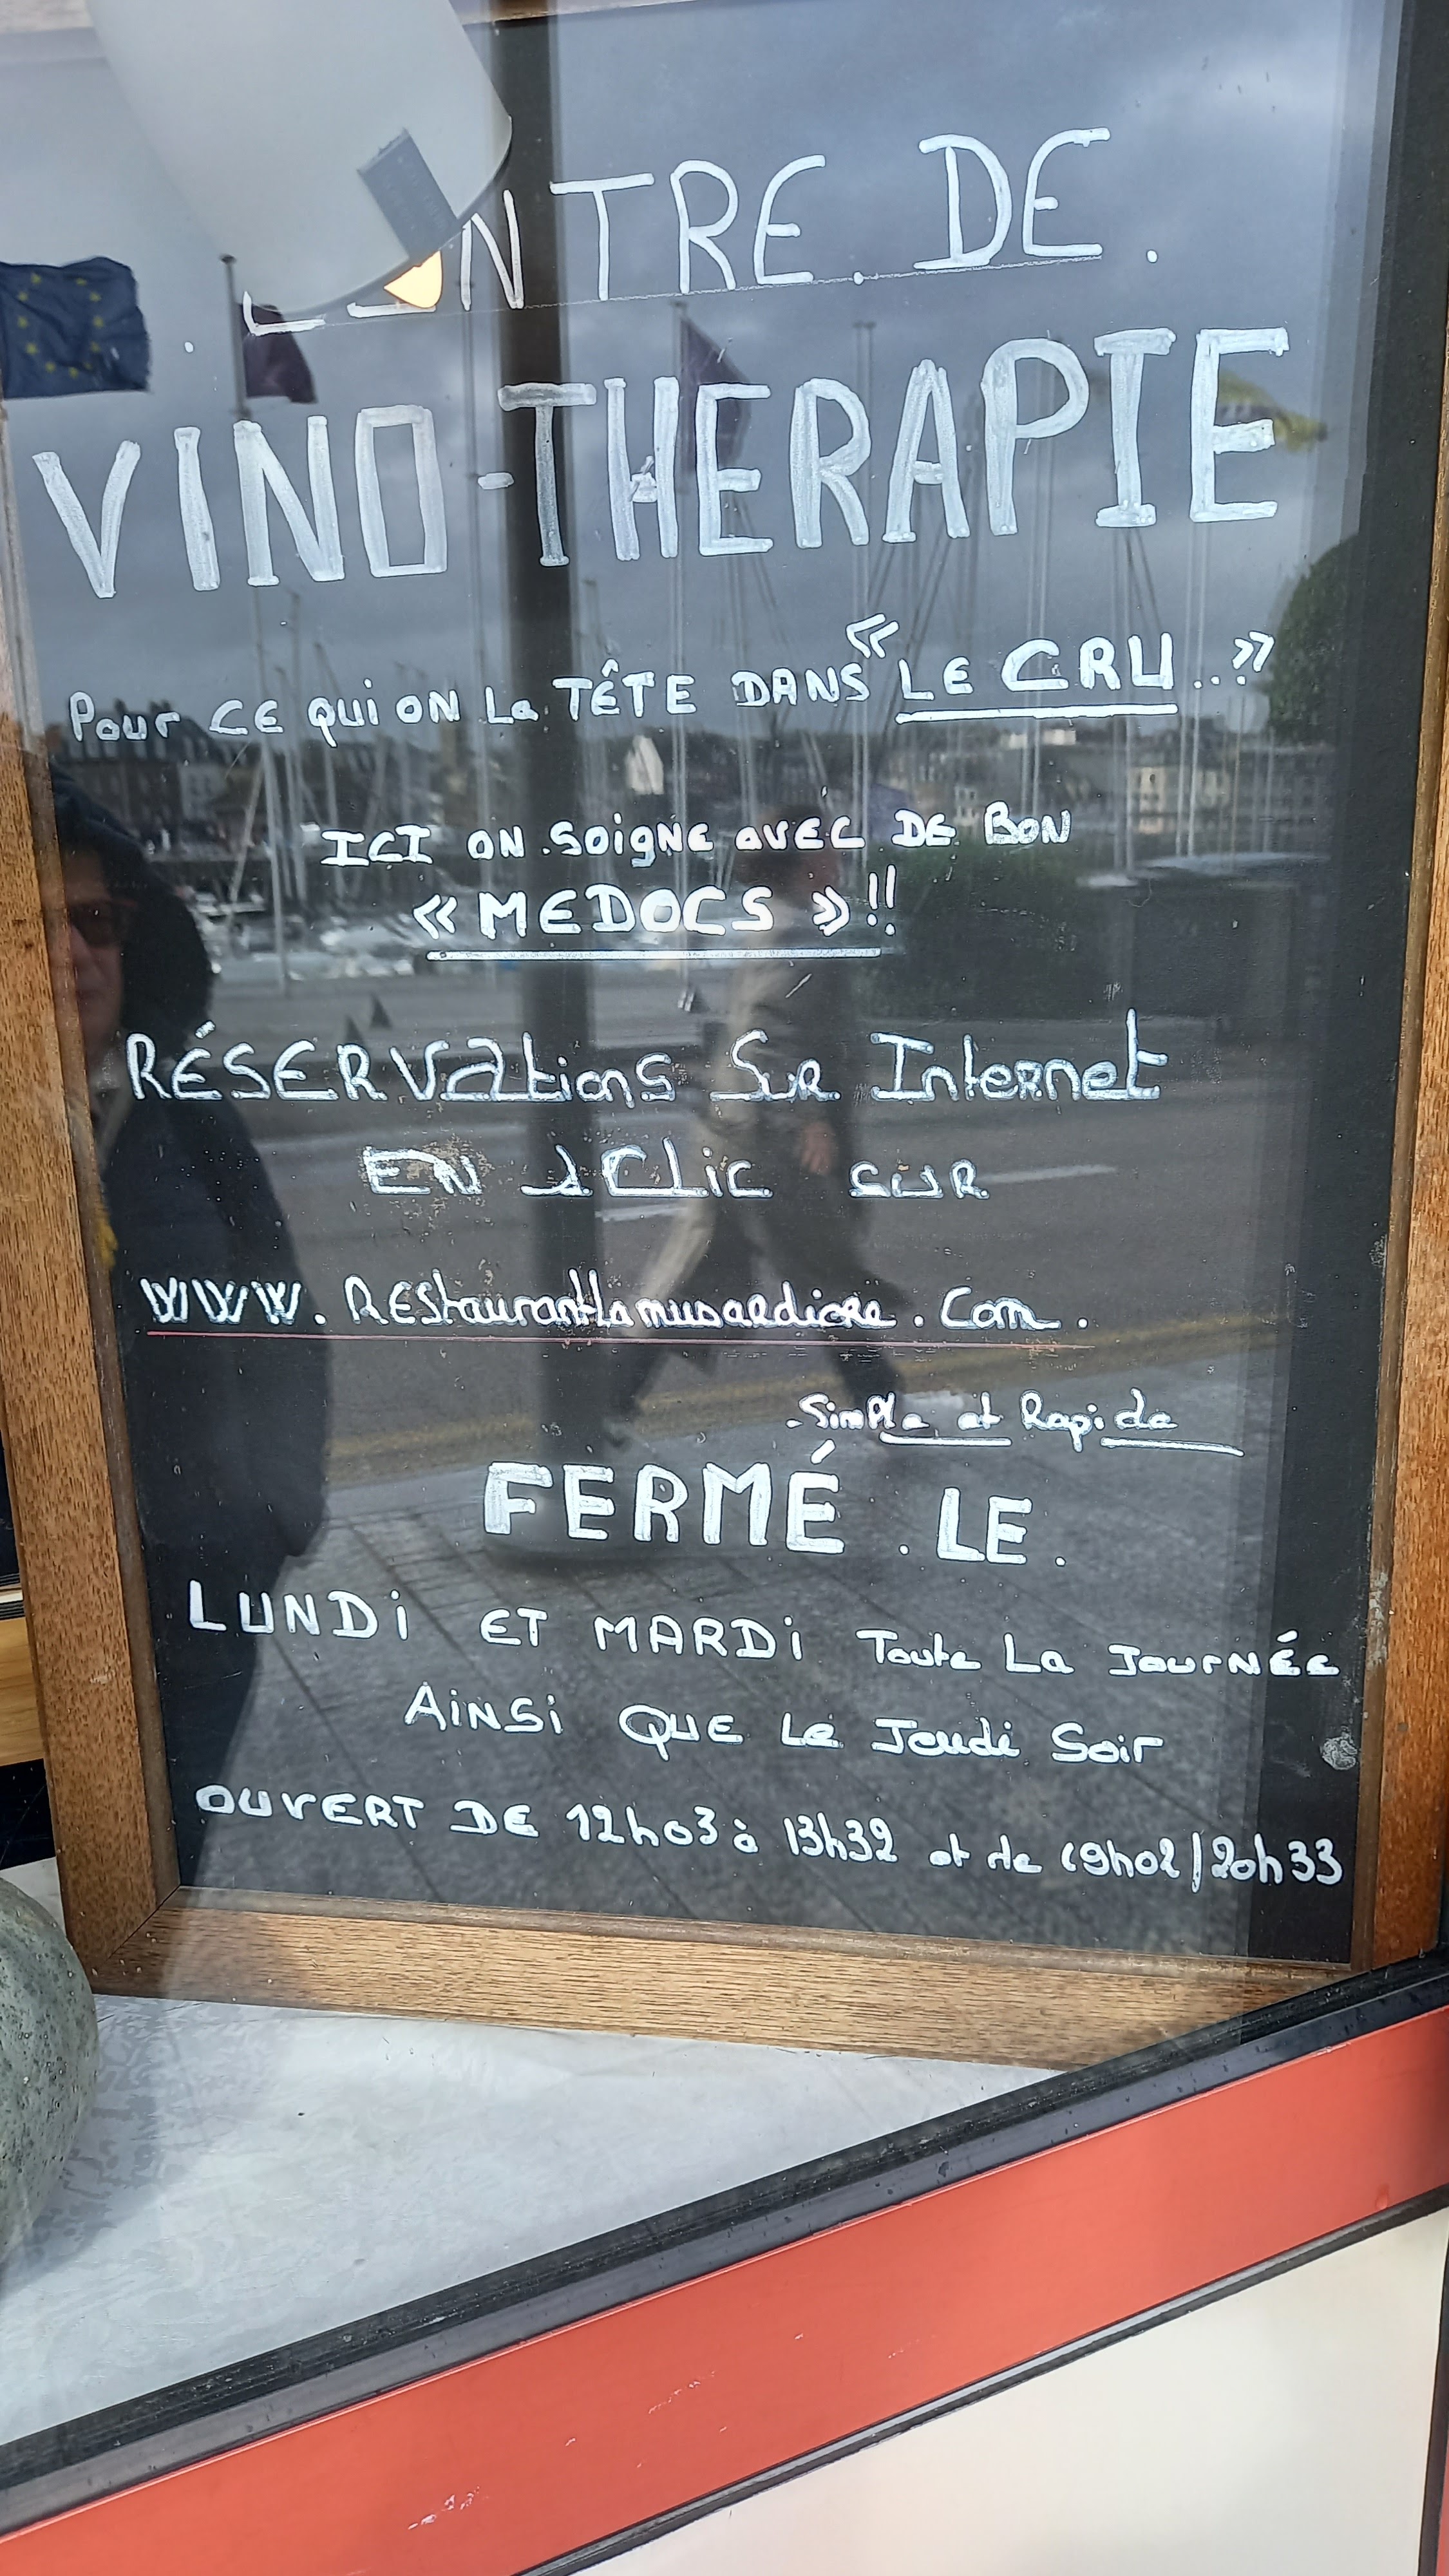 CENTRE. DE.
VINO-THERAPIE
Pour CE qui ON La TÊTE DANS « LE CRU...»
ICI ON SOIGNE AVEC DE BON
« MEDOCS »!!
RÉSERVATIONS SUR Internet
EN 1 CLIC SUR
WWW.Restaurantlamusardiere.Com.
Simple et Rapide
FERMÉ. LE.
LUNDI ET MARDI Toute La JOURNÉE
AINSI QUE Le Jeudi Soir
OUVERT DE 12h03 à 13h32 et de 19h02/20h33